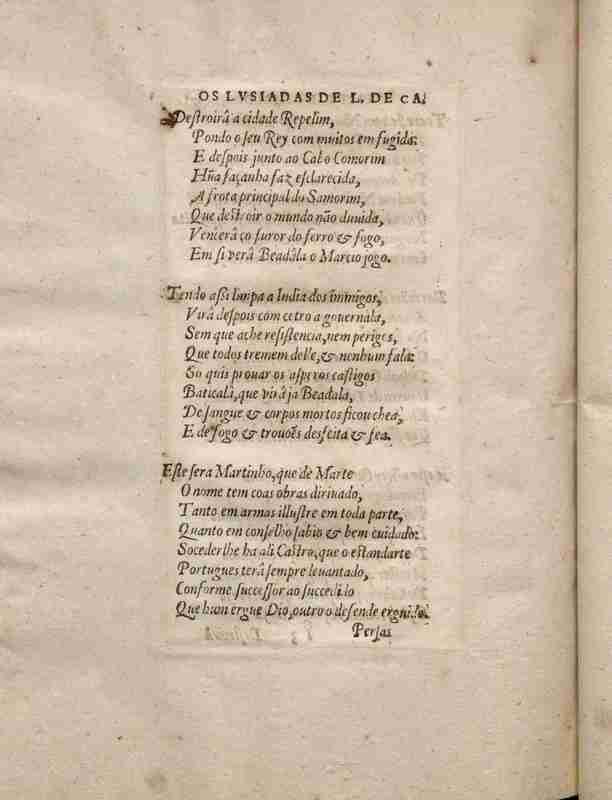 OS LVSIADAS DE L. DE CA.
Destroirâ a cidade Repelim,
Pondo o seu Rey com muitos em fugida:
E despois junto ao Cabo Comorim
Hũa façanha faz esclarecida,
A frota principal do Samorim,
Que destroir o mundo não duuida,
Vencerâ co furor do ferro & fogo,
Em si verâ Beadâla o Marcio jogo.
Tendo assi limpa a India dos immigos,
Virâ despois com cetro a governala,
Sem que ache resistencia, nem perigos,
Que todos tremem delle, & nenhum fala:
So quis prouar os asperos castigos
Baticalâ, que virâ ja Beadala,
De sangue & corpos mortos ficou chea,
E de fogo & trouões desfeita & fea.
Este sera Martinho, que de Marte
O nome tem coas obras diriuado,
Tanto em armas illustre em toda parte,
Quanto em conselho sabio & bem cuidado:
Socederlhe ha ali Castro, que o estandarte
Portugues terâ sempre leuantado,
Conforme successor ao succedido
Que hum ergue Dio, outro o defende erguido.
Persas